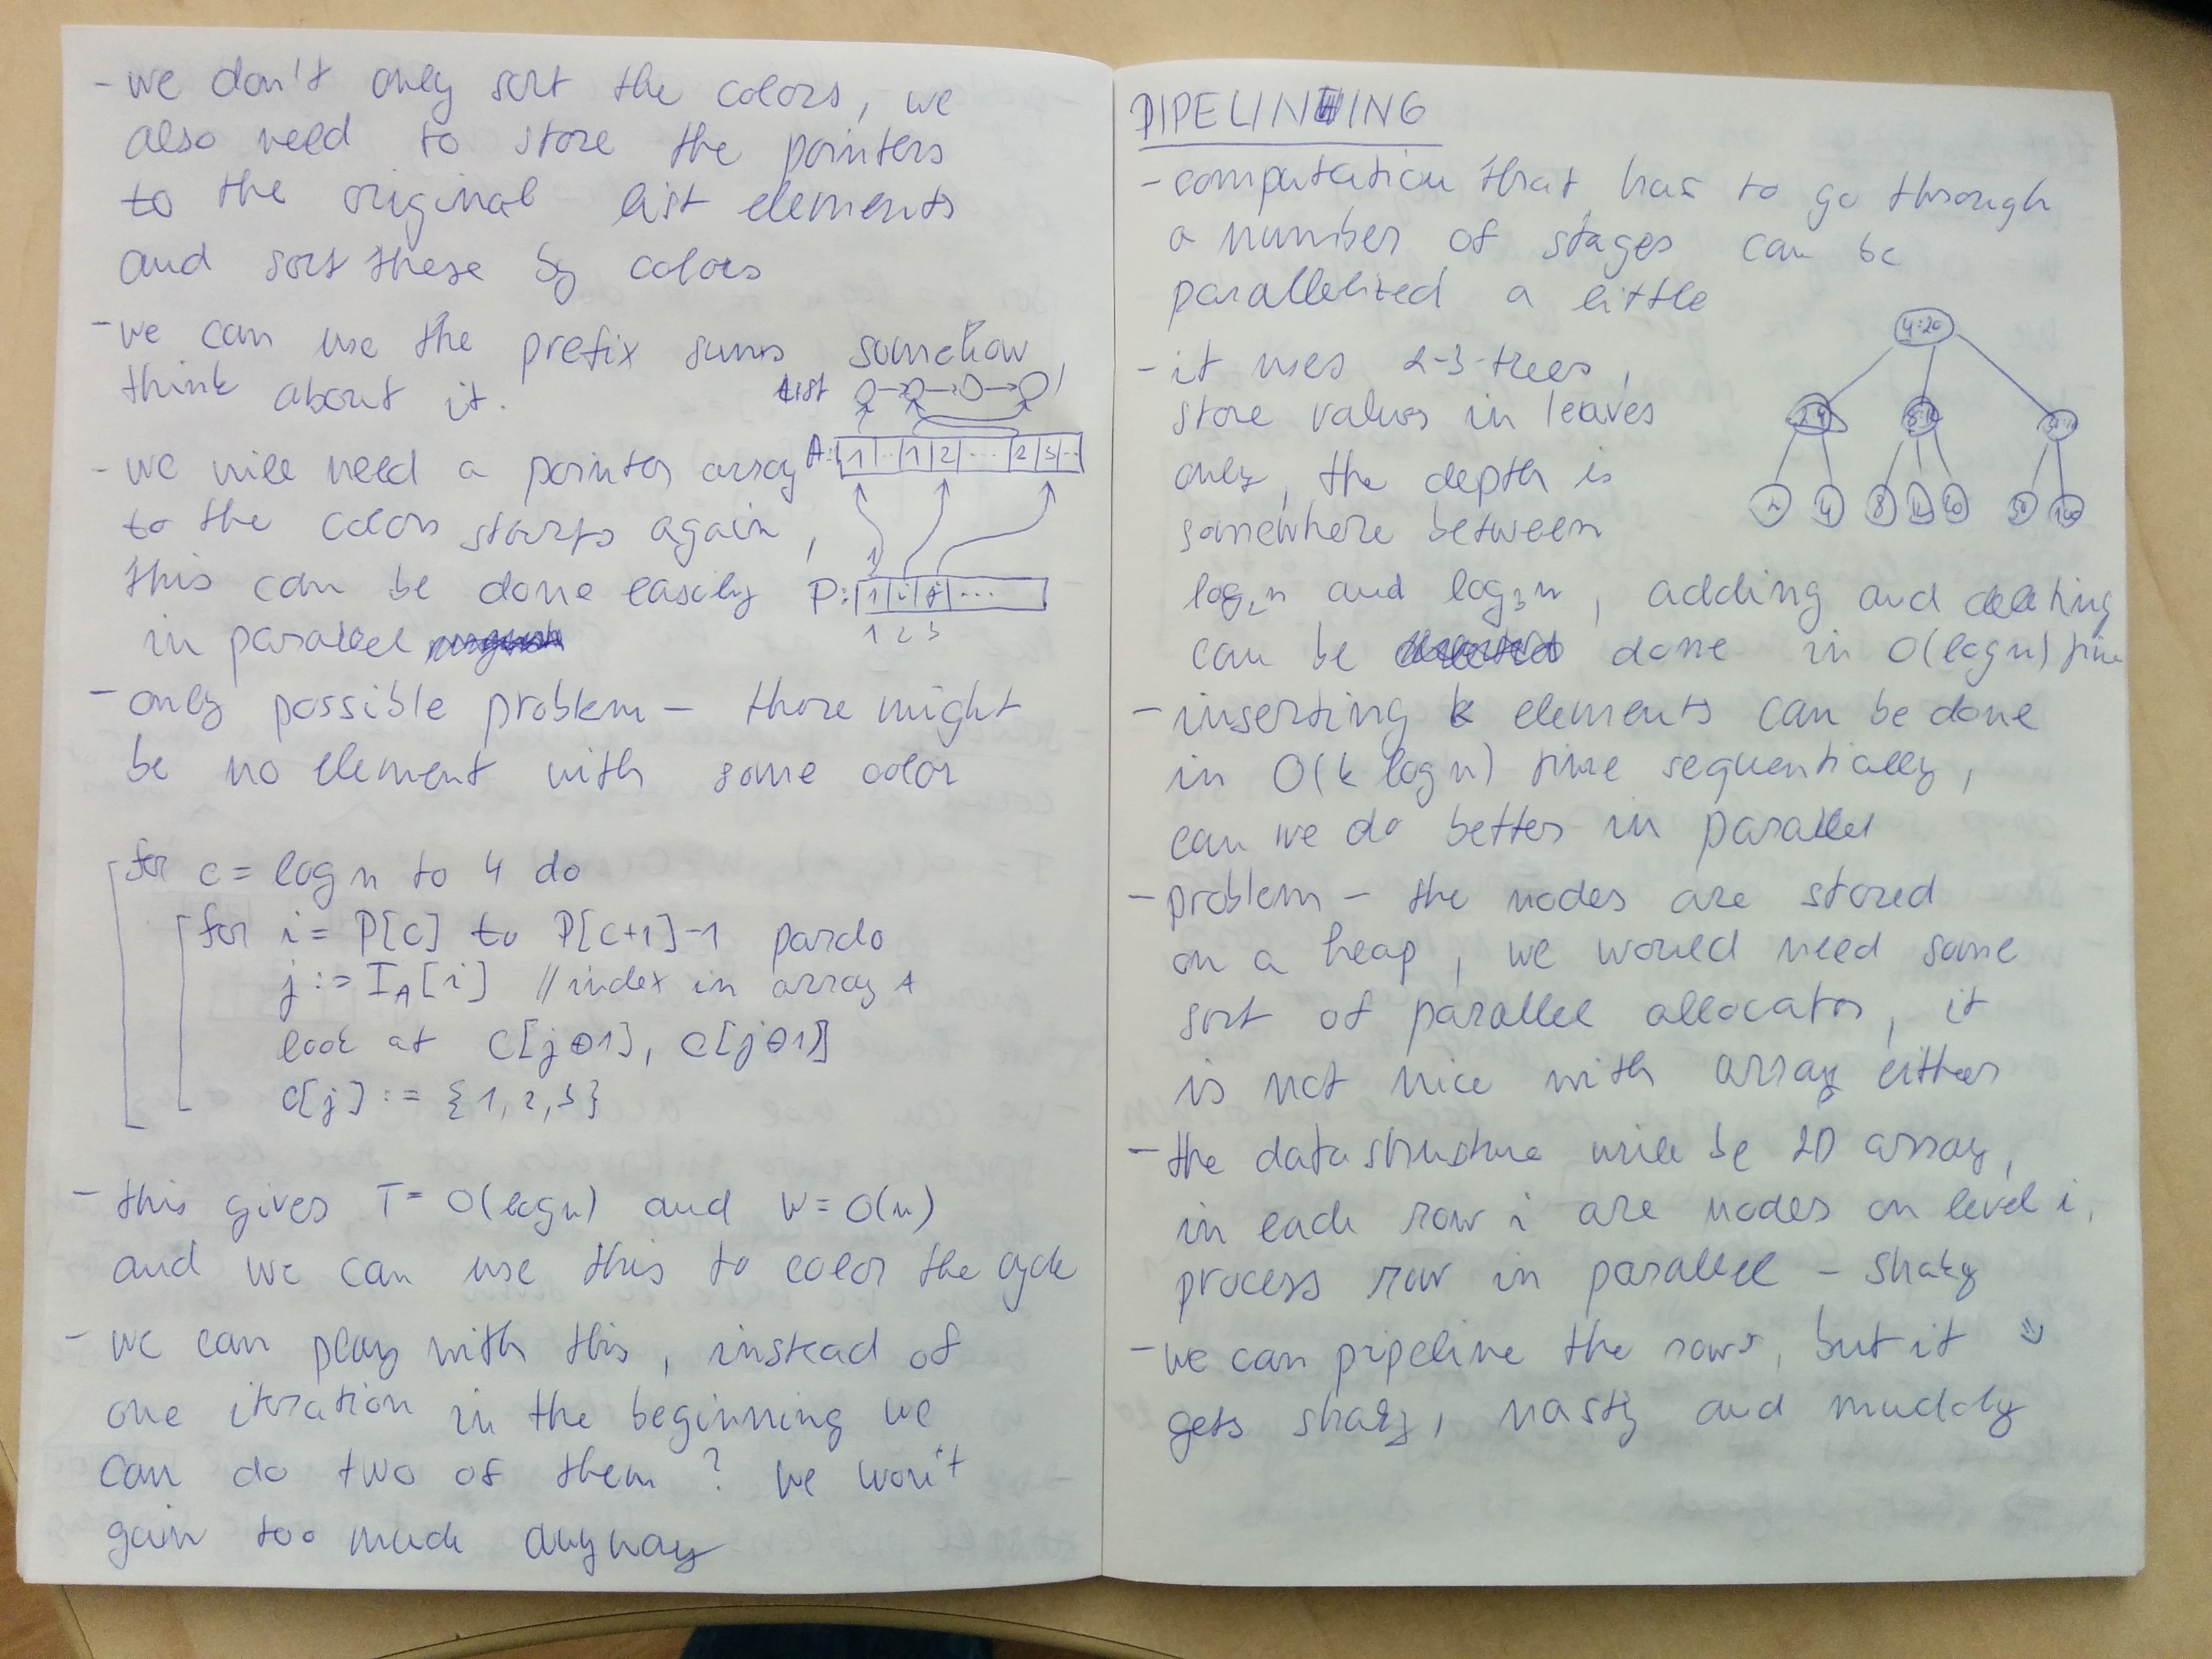 - we don't only sort the colors, we
also need to store the pointers
to the original list elements
and sort these by colors
- we can use the prefix sums somehow,
think about it.
List
- we will need a pointer array
A: 1 .. 1 2 ... 2 3 ..
to the colors starts again,
this can be done easily
P: 1 i j ...
1 2 3
in parallel
- only possible problem - there might
be no element with some color
for c = log n to 4 do
for i = P[c] to P[c+1]-1 pardo
j := I_A[i] // index in array A
look at c[j⊕1], c[j⊖1]
c[j] := {1, 2, 3}
- this gives T = O(log n) and W = O(n)
and we can use this to color the cycle
- we can play with this, instead of
one iteration in the beginning we
can do two of them? we won't
gain too much anyway
PIPELINING
- computation that has to go through
a number of stages can be
parallelized a little
4:20
- it uses 2-3-trees,
store values in leaves
only, the depth is
4 8 20
somewhere between
log₂n and log₃n, adding and deleting
can be done in O(log n) time
- inserting k elements can be done
in O(k log n) time sequentially,
can we do better in parallel
- problem - the nodes are stored
on a heap, we would need some
sort of parallel allocator, it
is not nice with array either
- the data structure will be 2D array,
in each row i are nodes on level i,
process row in parallel - shaky
- we can pipeline the rows, but it
gets shaky, nasty and muddy